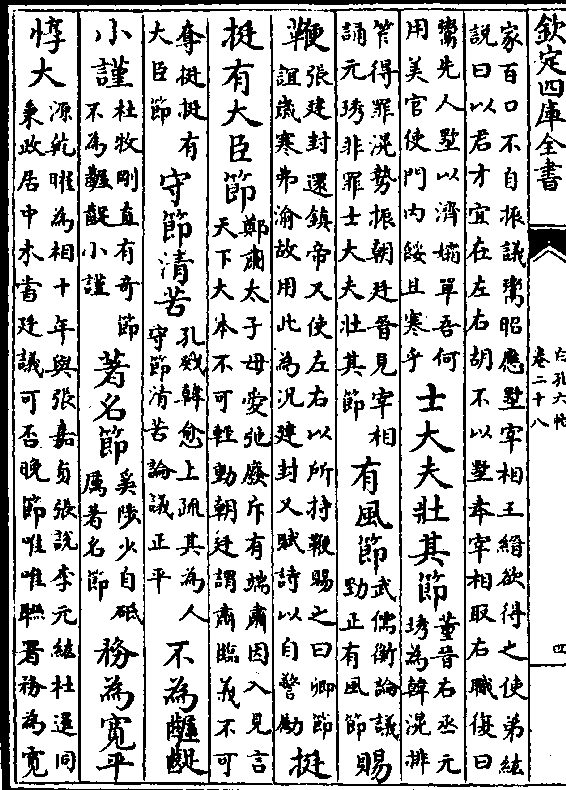 欽定四庫全書
白孔六帖
卷二十八
四
家百口不自振議鬻昭應墅宰相王縉欲得之使弟紘
說曰以君才宜在左右胡不以墅奉宰相取右職復曰
鬻先人墅以濟孀單吾何
用美官使門內餒且寒乎
士大夫壯其節
董晉右丞元
琇為韓滉排
笮得罪滉勢振朝廷晉見宰相
誦元琇非罪士大夫壯其節
有風節
武儒衡論議
勁正有風節
賜
鞭
張建封還鎮帝又使左右以所持鞭賜之曰卿節
誼歲寒弗渝故用此為況建封又賦詩以自警勵
挺
挺有大臣節
鄭肅太子母愛弛廢斥有端肅因入見言
天下大本不可輕動朝廷謂肅臨義不可
奪挺挺有
大臣節
守節清苦
孔戣韓愈上疏其為人
守節清苦論議正平
不為齷齪
小謹
杜牧剛直有奇節
不為齷齪小謹
著名節
奚陟少自砥
厲著名節
務為寬平
惇大
源乾曜為相十年與張嘉貞張說李元紘杜暹同
秉政居中未嘗廷議可否晚節唯唯聯署務為寬